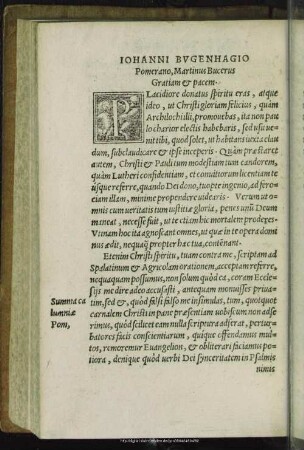 IOHANNI BVGENHAGIO
Pomerano, Martinus Bucerus
Gratiam & pacem.
PLacidiore donatus spiritu eras, atque
ideo, ut Christi gloriam felicius, quàm
Archilochi illi, promouebas, ita non pau
lo charior electis habebaris, sed usu ue=
nit tibi, quod solet, ut habitaris uicta clau
dum, subclaudicare & ipse inceperis. Quàm præstaret
autem, Christi & Pauli cum modestiam tum candorem,
quàm Lutheri confidentiam, et conuitiorum licentiam te
usque referre, quando Dei dono, tuopte ingenio, ad fero
ciam illam, minime propendere uidearis. Verum ut o=
mnis cum ueritatis tum iustitiæ gloria, penes unū Deum
maneat, necesse fuit, ut te etiam hic mortalem proderes.
Vtinam hoc ita agnoscant omnes, ut quæ in te opera domi
nus ædit, nequaq̃ propter hæc tua, contēnant.
Etenim Christi spiritu, tuam contra me, scriptam ad
Spalatinum & Agricolam orationem, accepturi referre,
nequaquam possumus, non solum quòd ea, coram Eccle=
sijs me dire adeo accusasti, antequam monuisses priua=
tim, sed &, quòd falsi falso me insimulas, tum, quot quot
carnalem Christi in pane præsentiam uobiscum non adse
rimus, quòd scilicet eam nulla scriptura adserat, pertur=
batores facti conscientiarum, quique offendamus mul=
tos, remoremur Euangelion, & obliterari faciamus po=
tiora, denique quòd uerbi Dei synceritatem in Psalmis
nimis
Summa ca
lumniæ
Pom,